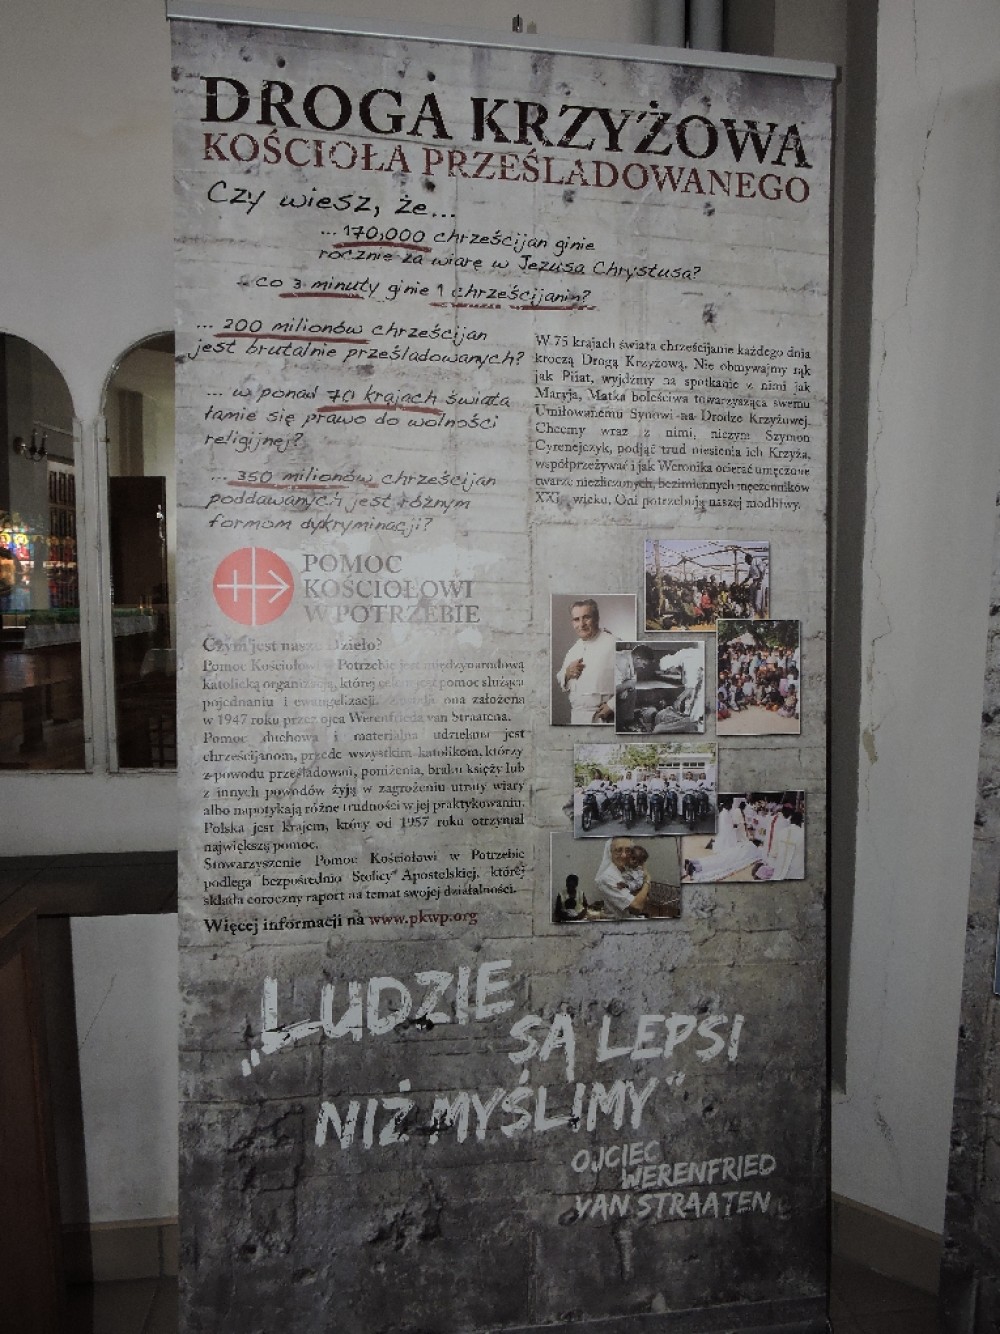 DROGA KRZYŻOWA
KOŚCIOŁA PRZEŚLADOWANEGO
Czy wiesz, że...
... 170,000 chrześcijan ginie
rocznie za wiarę w Jezusa Chrystusa?
- co 3 minuty ginie 1 chrześcijanin?
... 200 milionów chrześcijan
jest brutalnie prześladowanych?
... w ponad 70 krajach świata
łamie się prawo do wolności
religijnej?
... 350 milionów chrześcijan
poddawanych jest różnym
formom dykryminacji?
W 75 krajach świata chrześcijanie każdego dnia
kroczą Drogą Krzyżową. Nie obmywajmy rąk
jak Piłat, wyjdźmy na spotkanie z nimi jak
Maryja, Matka boleściwa towarzysząca swemu
Umiłowanemu Synowi na Drodze Krzyżowej.
Chcemy wraz z nimi, niczym Szymon
Cyrenejczyk, podjąć trud niesienia ich Krzyża,
współprzeżywać i jak Weronika ocierać umęczone
twarze niezliczonych, bezimiennych męczenników
XXI wieku. Oni potrzebują naszej modlitwy.
POMOC
KOŚCIOŁOWI
W POTRZEBIE
Czym jest nasze Dzieło?
Pomoc Kościołowi w Potrzebie jest międzynarodową
katolicką organizacją, której celem jest pomoc służąca
pojednaniu i ewangelizacji. Została ona założona
w 1947 roku przez ojca Werenfrieda van Straatena.
Pomoc duchowa i materialna udzielana jest
chrześcijanom, przede wszystkim katolikom, którzy
z powodu prześladowań, poniżenia, braku księży lub
z innych powodów żyją w zagrożeniu utraty wiary
albo napotykają różne trudności w jej praktykowaniu.
Polska jest krajem, który od 1957 roku otrzymał
największą pomoc.
Stowarzyszenie Pomoc Kościołowi w Potrzebie
podlega bezpośrednio Stolicy Apostolskiej, której
składa coroczny raport na temat swojej działalności.
Więcej informacji na www.pkwp.org
„LUDZIE
SĄ LEPSI
NIŻ MYŚLIMY”
OJCIEC
WERENFRIED
VAN STRAATEN